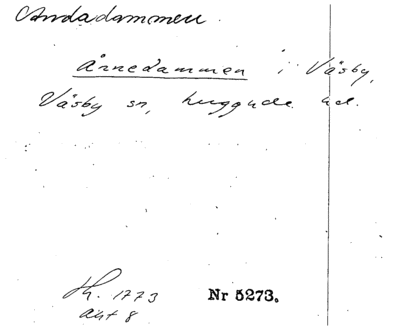 Andadammen.
Årnedammen i Väsby,
Väsby sn, Luggude hd.
Sk. 1773
akt 8
Nr 5273.